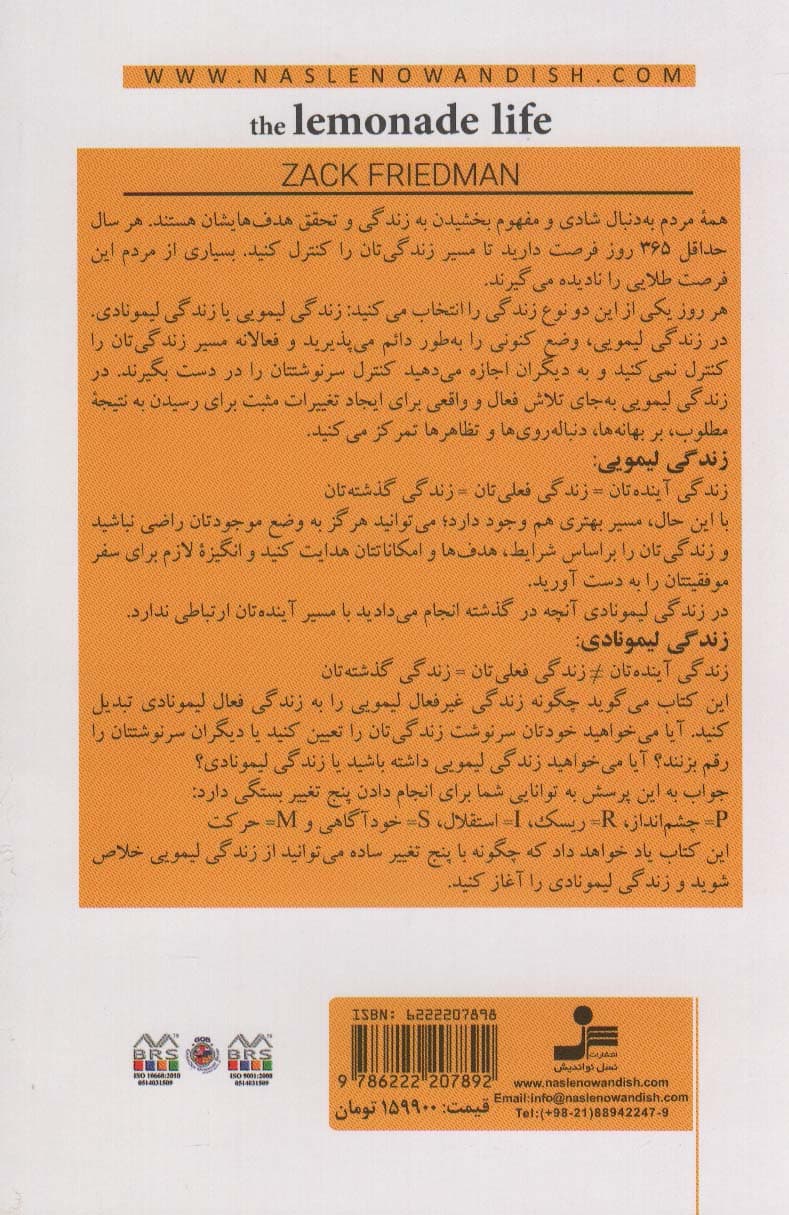 WWW.NASLENOWANDISH.COM
the lemonade life
ZACK FRIEDMAN
همهٔ مردم به‌دنبال شادی و مفهوم بخشیدن به زندگی و تحقق هدف‌هایشان هستند. هر سال
حداقل ۳۶۵ روز فرصت دارید تا مسیر زندگی‌تان را کنترل کنید. بسیاری از مردم این
فرصت طلایی را نادیده می‌گیرند.
هر روز یکی از این دو نوع زندگی را انتخاب می‌کنید: زندگی لیمویی یا زندگی لیمونادی.
در زندگی لیمویی، وضع کنونی را به‌طور دائم می‌پذیرید و فعالانه مسیر زندگی‌تان را
کنترل نمی‌کنید و به دیگران اجازه می‌دهید کنترل سرنوشتتان را در دست بگیرند. در
زندگی لیمویی به‌جای تلاش فعال و واقعی برای ایجاد تغییرات مثبت برای رسیدن به نتیجهٔ
مطلوب، بر بهانه‌ها، دنباله‌روی‌ها و تظاهرها تمرکز می‌کنید.
زندگی لیمویی:
زندگی آینده‌تان = زندگی فعلی‌تان = زندگی گذشته‌تان
با این حال، مسیر بهتری هم وجود دارد؛ می‌توانید هرگز به وضع موجودتان راضی نباشید
و زندگی‌تان را براساس شرایط، هدف‌ها و امکاناتتان هدایت کنید و انگیزهٔ لازم برای سفر
موفقیتتان را به دست آورید.
در زندگی لیمونادی آنچه در گذشته انجام می‌دادید با مسیر آینده‌تان ارتباطی ندارد.
زندگی لیمونادی:
زندگی آینده‌تان ≠ زندگی فعلی‌تان = زندگی گذشته‌تان
این کتاب می‌گوید چگونه زندگی غیرفعال لیمویی را به زندگی فعال لیمونادی تبدیل
کنید. آیا می‌خواهید خودتان سرنوشت زندگی‌تان را تعیین کنید یا دیگران سرنوشتتان را
رقم بزنند؟ آیا می‌خواهید زندگی لیمویی داشته باشید یا زندگی لیمونادی؟
جواب به این پرسش به توانایی شما برای انجام دادن پنج تغییر بستگی دارد:
P= چشم‌انداز، R= ریسک، I= استقلال، S= خودآگاهی و M= حرکت
این کتاب یاد خواهد داد که چگونه با پنج تغییر ساده می‌توانید از زندگی لیمویی خلاص
شوید و زندگی لیمونادی را آغاز کنید.
BRS
ISO 10668:2010
0514031509
BRS
ISO 9001:2008
0514031509
ISBN: 6222207898
9 786222 207892
قیمت: ۱۵۹۹۰۰ تومان
انتشارات
نسل نواندیش
www.naslenowandish.com
Email:info@naslenowandish.com
Tel:(+98-21)88942247-9